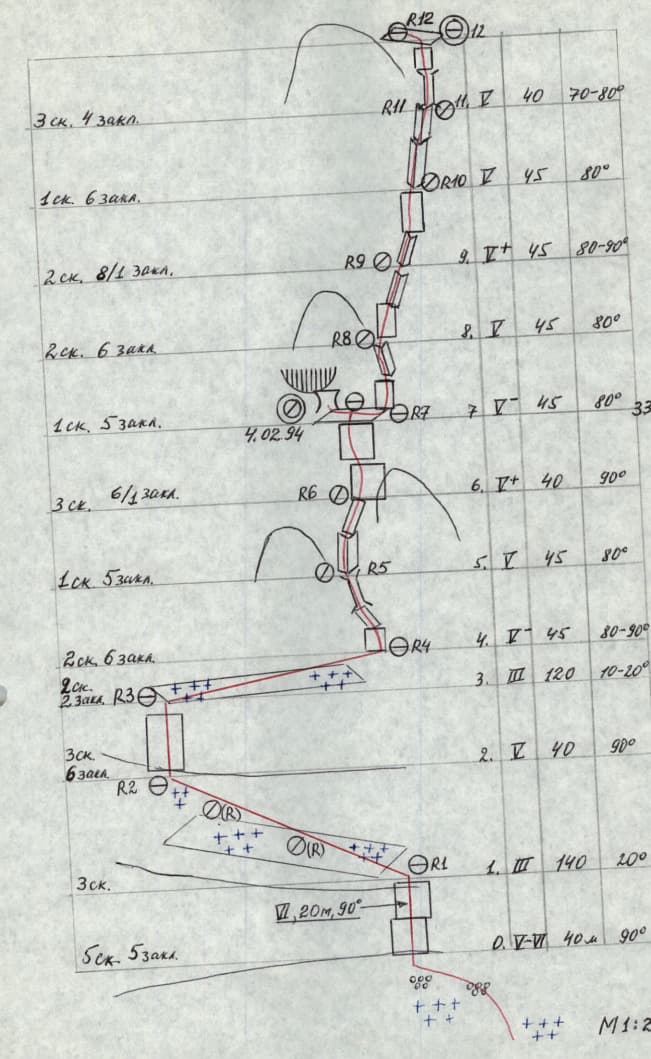 R12 12
3 ск. 4 закл. R11 11. V 40 70-80°
1 ск. 6 закл. R10 V 45 80°
2 ск. 8/1 закл. R9 9. V+ 45 80-90°
2 ск. 6 закл. R8 8. V 45 80°
1 ск. 5 закл. R7 7 V- 45 80° 33
4.02.94
3 ск. 6/1 закл. R6 6. V+ 40 90°
1 ск. 5 закл. R5 5. V 45 80°
2 ск. 6 закл. R4 4. V- 45 80-90°
2 ск.
2 закл. R3 3. III 120 10-20°
3 ск.
6 закл. 2. V 40 90°
R2
(R)
(R)
3 ск. R1 1. III 140 20°
VI, 20м, 90°
5 ск. 5 закл. 0. V-VI 40 м 90°
М 1:2